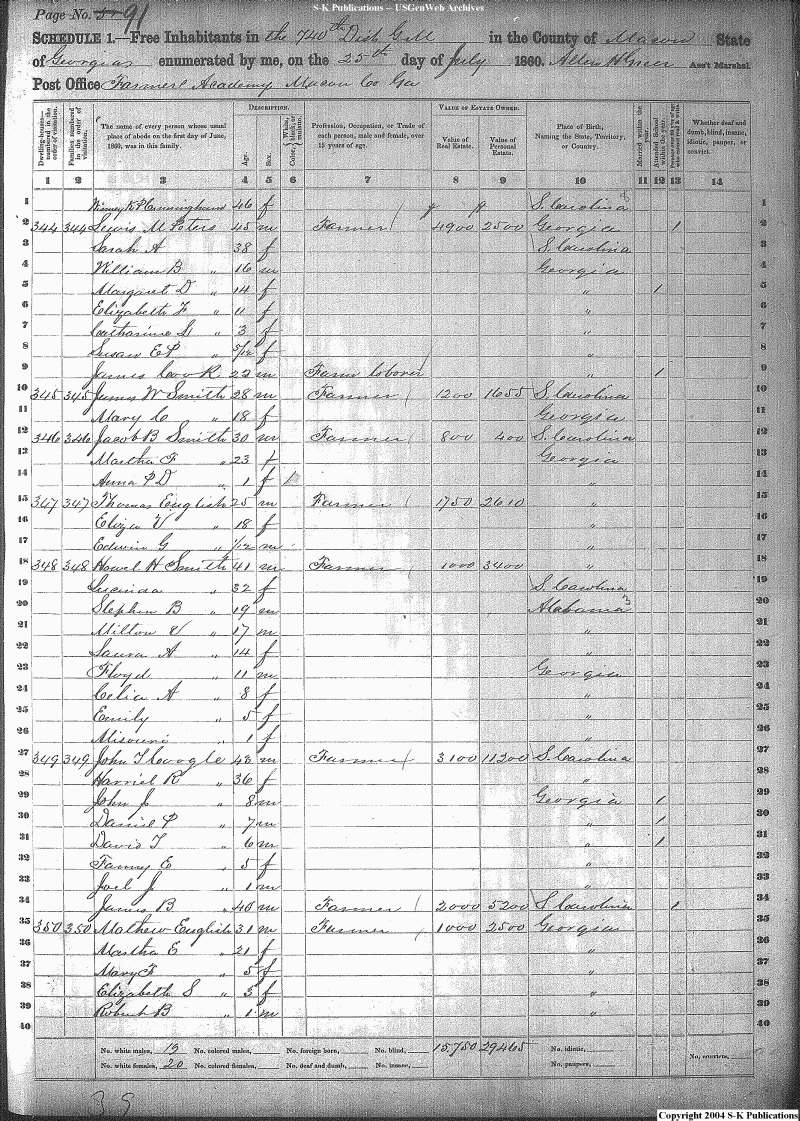 S-K Publications -- USGenWeb Archives
Page No. 91
SCHEDULE 1.—Free Inhabitants in the 740th Dist G.M in the County of Macon State
of Georgia enumerated by me, on the 25th day of July 1860. Allen H Greer Ass't Marshal.
Post Office Farmers Academy Macon Co Ga
DESCRIPTION. VALUE OF ESTATE OWNED.
Dwelling-houses—numbered in the order of visitation. Families numbered in the order of visitation. The name of every person whose usual place of abode on the first day of June, 1860, was in this family. Age. Sex. Color, White, black, or mulatto. Profession, Occupation, or Trade of each person, male and female, over 15 years of age. Value of Real Estate. Value of Personal Estate. Place of Birth, Naming the State, Territory, or Country. Married within the year. Attended School within the year. Whether deaf and dumb, blind, insane, idiotic, pauper, or convict.
1 2 3 4 5 6 7 8 9 10 11 12 13 14
1 Cunningham 46 f S. Carolina 1
2 344 344 Lewis M Peters 45 m Farmer 4900 2500 Georgia 1 2
3 Sarah A 38 f S. Carolina 3
4 William B " 16 m Georgia 4
5 Margaret D " 14 f " 1 5
6 Elizabeth F " 11 f " 6
7 Catharine L " 3 f " 7
8 Susan E P " 5/12 f " 8
9 James Cook 22 m Farm laborer " 1 9
10 345 345 James W Smith 28 m Farmer 1200 1655 S. Carolina 10
11 Mary C " 18 f Georgia 11
12 346 346 Jacob B Smith 30 m Farmer 800 400 S. Carolina 12
13 Martha F " 23 f Georgia 13
14 Anna P D " 1 f " 14
15 347 347 Thomas English 25 m Farmer 1750 2610 " 15
16 Eliza V " 18 f " 16
17 Edwin G " 1/12 m " 17
18 348 348 Howel H Smith 41 m Farmer 1000 3400 " 18
19 Lucinda " 32 f S. Carolina 19
20 Stephen B " 19 m Alabama 3 20
21 Milton V " 17 m " 21
22 Laura A " 14 f " 22
23 Floyd " 11 m Georgia 23
24 Celia A " 8 f " 24
25 Emily " 5 f " 25
26 Misouri " 1 f " 26
27 349 349 John T Coogle 43 m Farmer 3100 11200 S. Carolina 27
28 Harriet R " 36 f " 28
29 John J " 8 m Georgia 1 29
30 Daniel P " 7 m " 1 30
31 David T " 6 m " 1 31
32 Fanny E " 5 f " 32
33 Joel J " 1 m " 33
34 James B " 40 m Farmer 2000 5200 S Carolina 1 34
35 350 350 Mathew English 31 m Farmer 1000 2500 Georgia 35
36 Martha E " 21 f " 36
37 Mary F " 5 f " 37
38 Elizabeth S " 3 f " 38
39 Robert B " 1 m " 39
40 40
No. white males, 19 No. colored males, No. foreign born, No. blind, 15,750 29465 No. idiotic,
No. white females, 20 No. colored females, No. deaf and dumb, No. insane, No. paupers, No. convicts,
39
Copyright 2004 S-K Publications